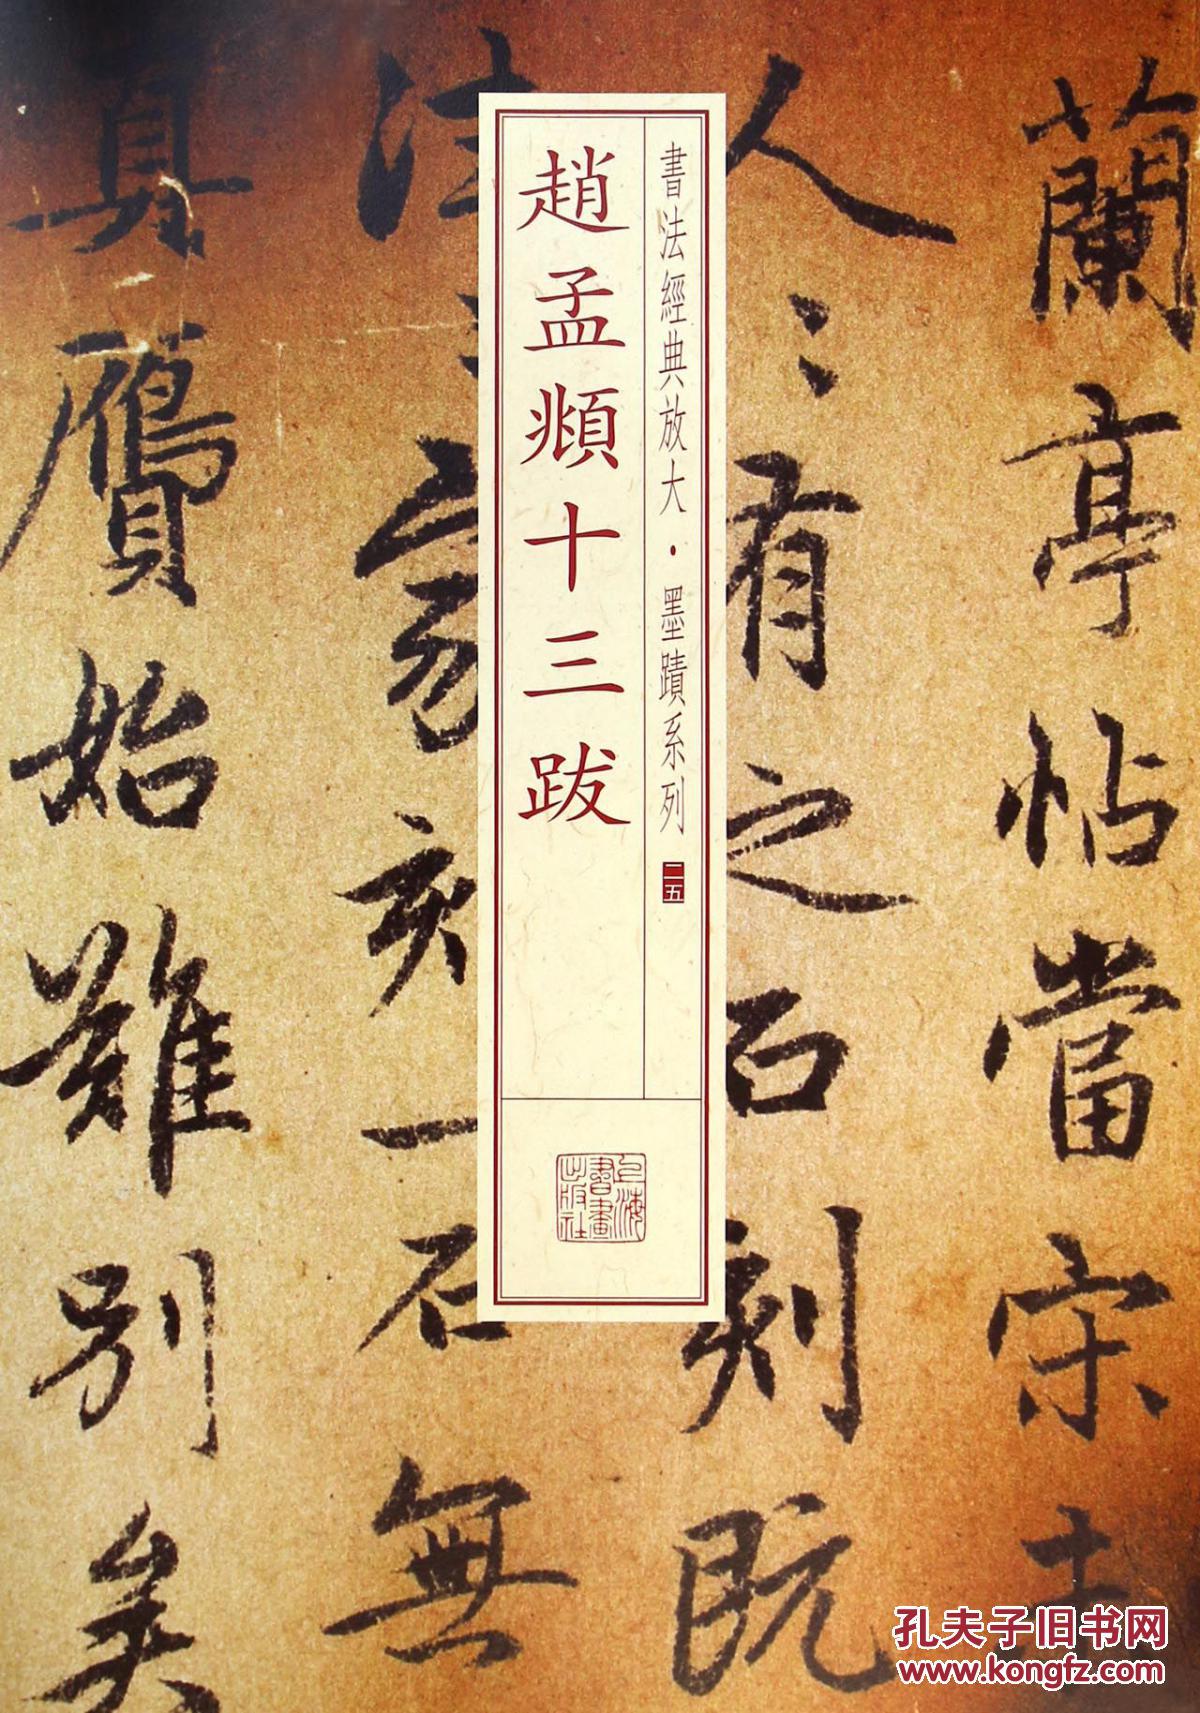 書法經典放大·墨蹟系列
二五
趙孟頫十三跋
上海
書畫
出版社
蘭亭帖當宋
人〻有之石刻既
往〻家刻一石無
真贗始難別矣
孔夫子旧书网
www.kongfz.com